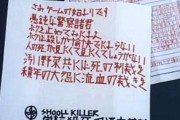 さあゲームの始まりです
愚鈍な警察諸君
ボクを止めてみたまえ
ボクは殺しが愉快でたまらない
人の死が見たくて見たくてしょうがない
汚い野菜共には死の制裁を
積年の大怨に流血の裁きを
SHOOLL KILLER